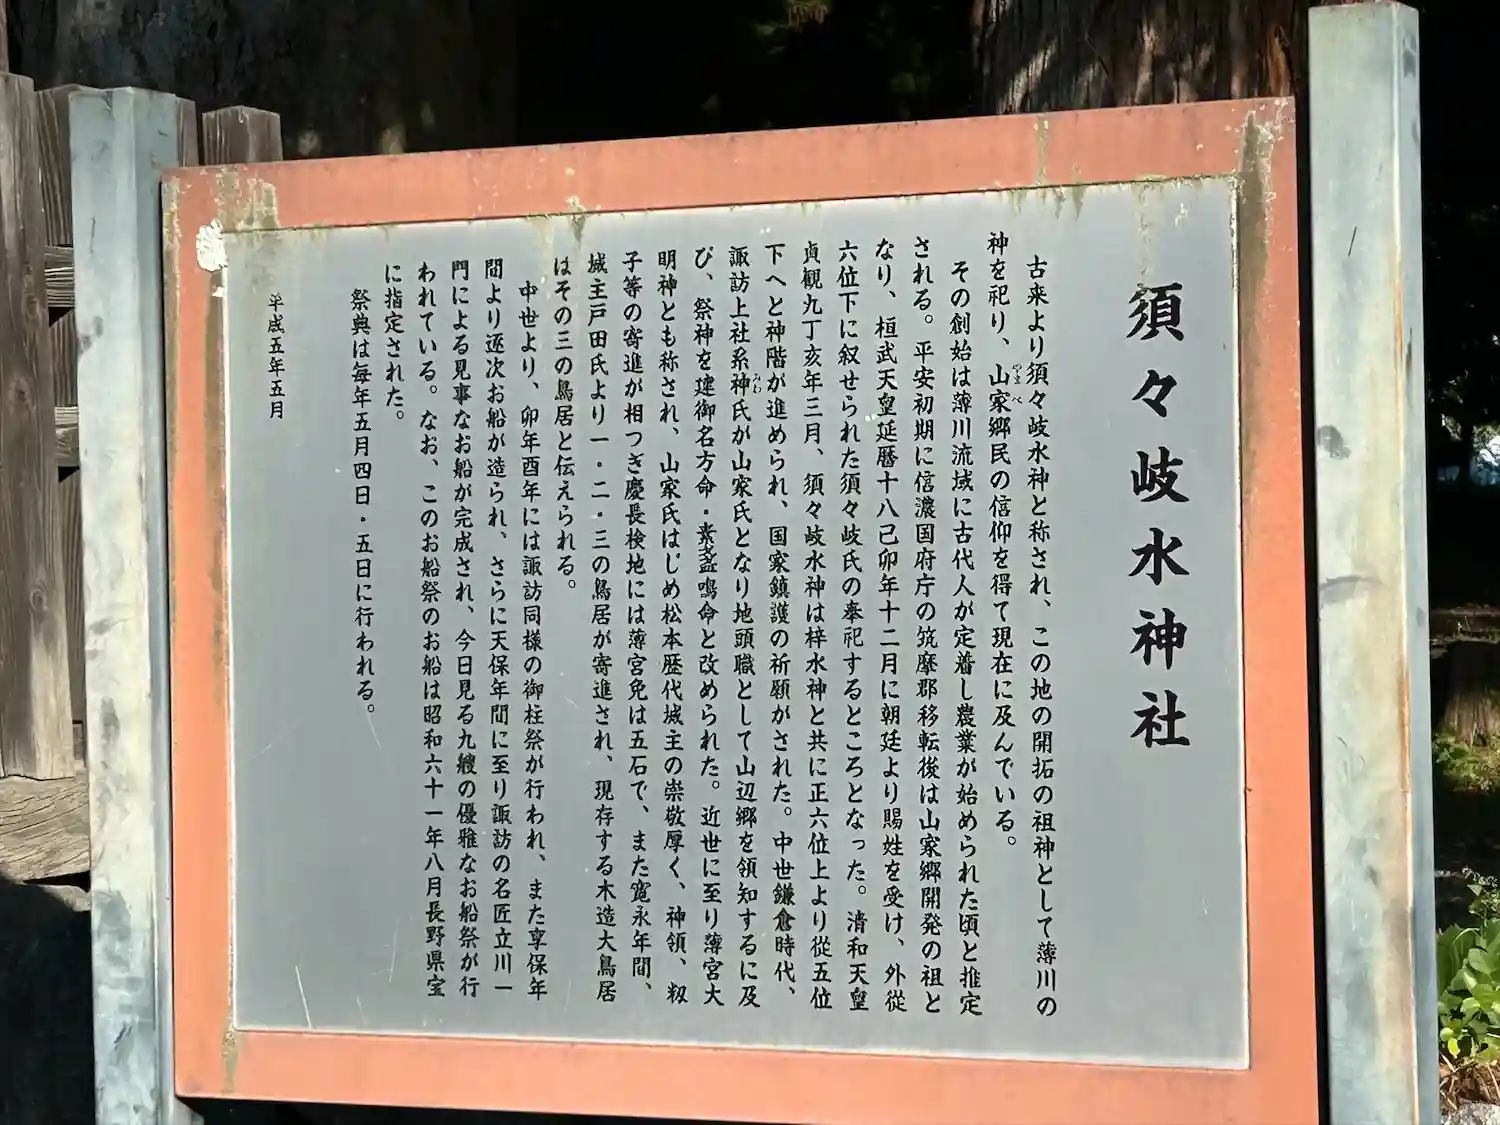 須々岐水神社
古来より須々岐水神と称され、この地の開拓の祖神として薄川の
神を祀り、山家郷民の信仰を得て現在に及んでいる。
その創始は薄川流域に古代人が定着し農業が始められた頃と推定
される。平安初期に信濃国府庁の筑摩郡移転後は山家郷開発の祖と
なり、桓武天皇延暦十八己卯年十二月に朝廷より賜姓を受け、外従
六位下に叙せられた須々岐氏の奉祀するところとなった。清和天皇
貞観九丁亥年三月、須々岐水神は梓水神と共に正六位上より従五位
下へと神階が進められ、国家鎮護の祈願がされた。中世鎌倉時代、
諏訪上社系神氏が山家氏となり地頭職として山辺郷を領知するに及
び、祭神を建御名方命・素盞鳴命と改められた。近世に至り薄宮大
明神とも称され、山家氏はじめ松本歴代城主の崇敬厚く、神領、籾
子等の寄進が相つぎ慶長検地には薄宮免は五石で、また寛永年間、
城主戸田氏より一・二・三の鳥居が寄進され、現存する木造大鳥居
はその三の鳥居と伝えられる。
中世より、卯年酉年には諏訪同様の御柱祭が行われ、また享保年
間より逐次お船が造られ、さらに天保年間に至り諏訪の名匠立川一
門による見事なお船が完成され、今日見る九艘の優雅なお船祭が行
われている。なお、このお船祭のお船は昭和六十一年八月長野県宝
に指定された。
祭典は毎年五月四日・五日に行われる。
平成五年五月